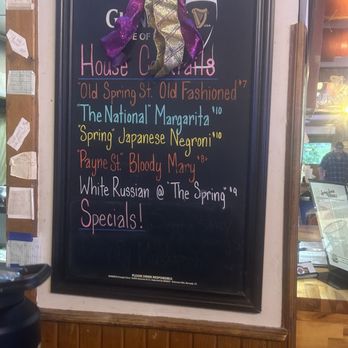 House Cocktails
"Old Spring St. Old Fashioned" $7
"The National" Margarita $10
"Spring" Japanese Negroni $10
"Payne St." Bloody Mary $8+
White Russian @ "The Spring" $9
Specials!
PLEASE DRINK RESPONSIBLY.